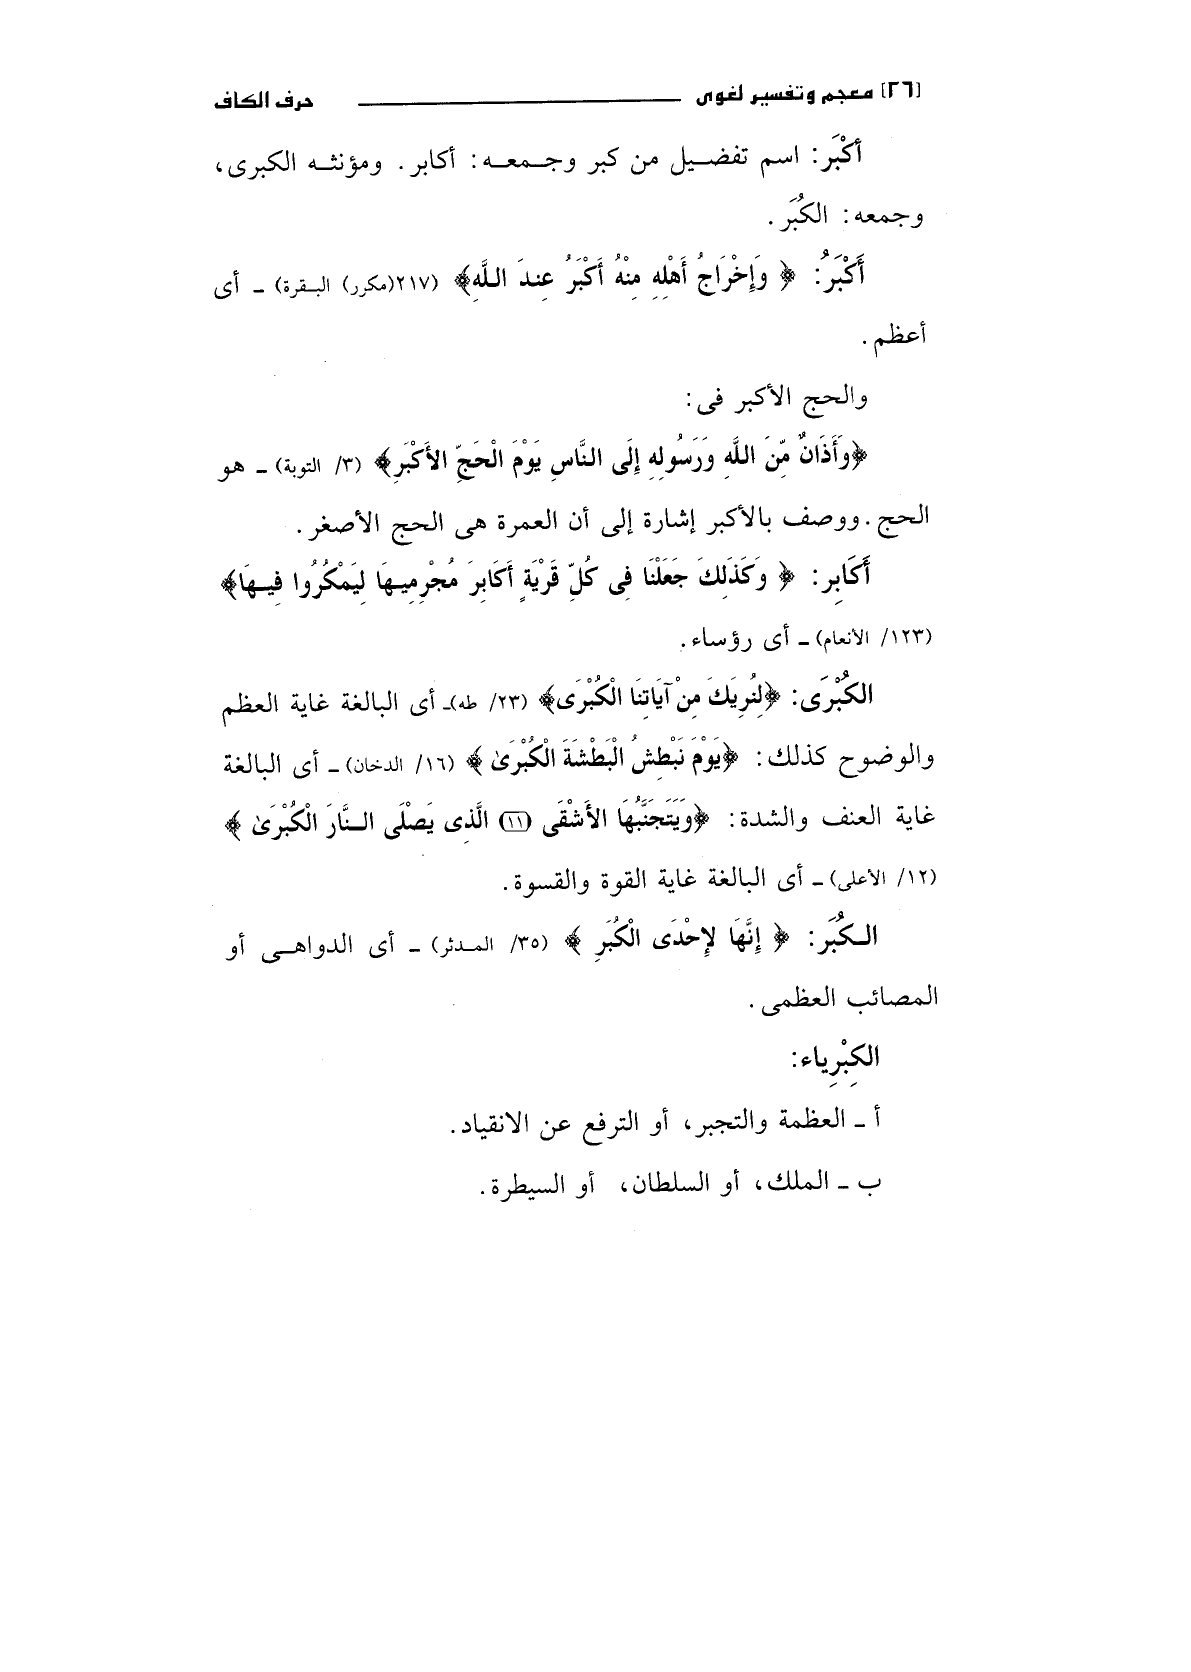 [٢٦] معجم وتفسير لغوى حرف الكاف
أَكْبَر: اسم تفضيل من كبر وجمعه: أكابر. ومؤنثه الكبرى،
وجمعه: الكُبَر.
أَكْبَرُ: ﴿ وَإِخْرَاجُ أَهْلِهِ مِنْهُ أَكْبَرُ عِندَ اللَّهِ﴾ (٢١٧(مكرر) البقرة) ـ أى
أعظم.
والحج الأكبر فى:
﴿وَأَذَانٌ مِّنَ اللَّهِ وَرَسُولِهِ إِلَى النَّاسِ يَوْمَ الْحَجِّ الأَكْبَرِ﴾ (٣/ التوبة) ـ هو
الحج. ووصف بالأكبر إشارة إلى أن العمرة هى الحج الأصغر.
أَكَابِر: ﴿ وَكَذَلِكَ جَعَلْنَا فِى كُلِّ قَرْيَةٍ أَكَابِرَ مُجْرِمِيهَا لِيَمْكُرُوا فِيهَا﴾
(١٢٣/ الأنعام) ـ أى رؤساء.
الكُبْرَى: ﴿لِنُرِيَكَ مِنْ آيَاتِنَا الْكُبْرَى﴾ (٢٣/ طه)ـ أى البالغة غاية العظم
والوضوح كذلك: ﴿يَوْمَ نَبْطِشُ الْبَطْشَةَ الْكُبْرَىٰ ﴾ (١٦/ الدخان) ـ أى البالغة
غاية العنف والشدة: ﴿وَيَتَجَنَّبُهَا الأَشْقَى (١١) الَّذِى يَصْلَى النَّارَ الْكُبْرَىٰ ﴾
(١٢/ الأعلى) ـ أى البالغة غاية القوة والقسوة.
الكُبَر: ﴿ إِنَّهَا لإِحْدَى الْكُبَرِ ﴾ (٣٥/ المدثر) ـ أى الدواهى أو
المصائب العظمى.
الكِبْرِياء:
أ ـ العظمة والتجبر، أو الترفع عن الانقياد.
ب ـ الملك، أو السلطان، أو السيطرة.